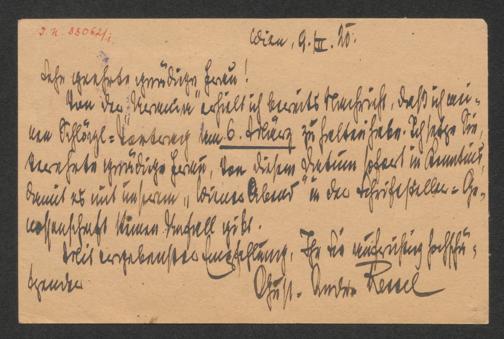 J.N. 83062/1
Wien, 9. II. 20.
Sehr geehrte gnädige Frau!
Von der "Urania" erhielt ich bereits Nachricht, daß ich mei-
nen Schlögl-Vortrag am 6. März zu halten habe. Ich setze Sie,
verehrte gnädige Frau, von diesem Datum sofort in Kenntnis,
damit es mit unserem "Wiener Abend" in der Schriftsteller-Ge-
nossenschaft keinen Unfall gibt.
Mit ergebenster Empfehlung, Ihr Sie aufrichtig hochschä-
tzender
Gust. Andr. Ressel